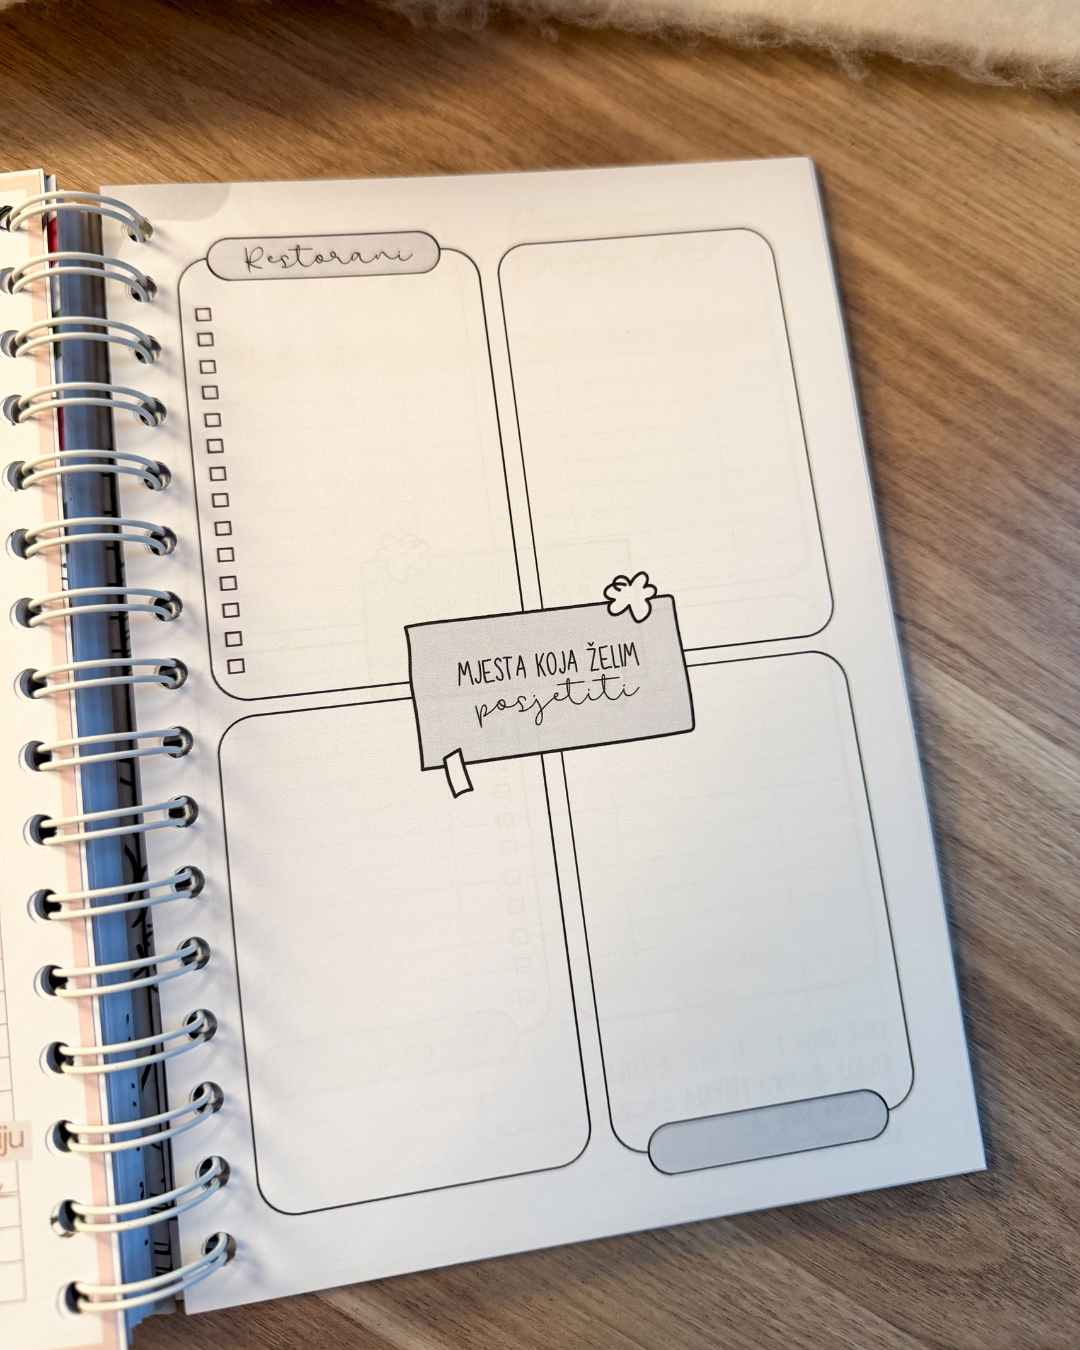 Restorani
MJESTA KOJA ŽELIM
posjetiti
iju